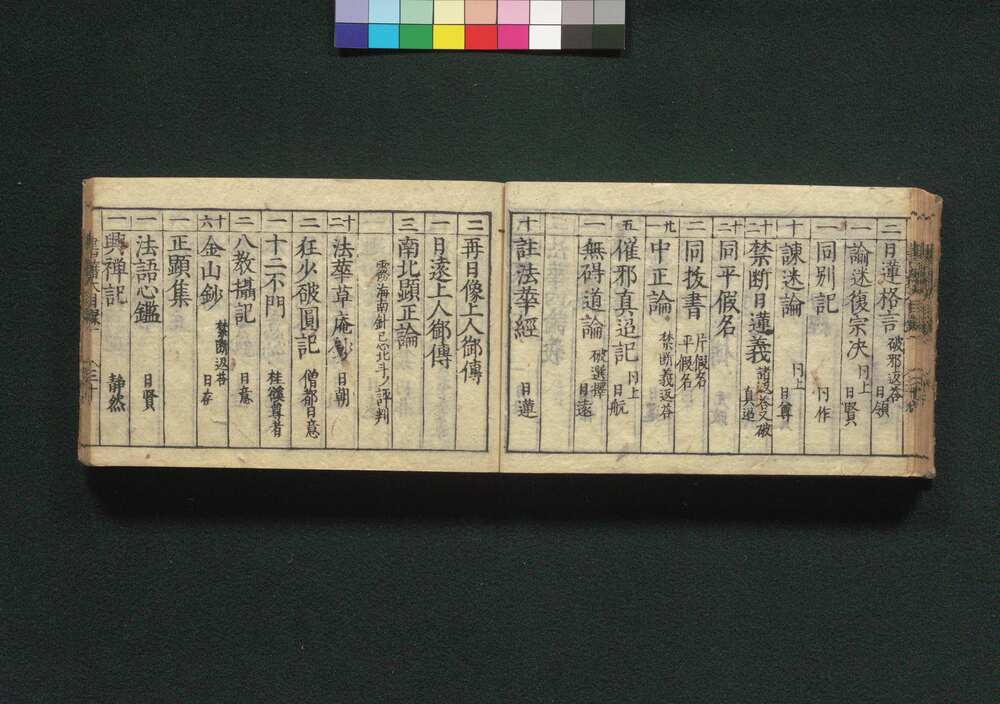 二 日蓮格言 破邪返答 日領
一 論迷復宗决 同上 日賢
一 同別記 同作
十 諫迷論 同上 日尊
二十 禁断日蓮義 諸返答又破 真迢
二十 同平假名
二 同抜書 片假名 平假名
九 中正論 禁断義返答
五 催邪真迢記 同上 日航
一 無碍道論 破選擇 日遠
十 註法華經 日蓮
二 再日像上人御傳
一 日遠上人御傳
三 南北顕正論
霊鷲海南針已心北斗ノ評判
二十 法華草庵鈔 日朝
二 狂少破圓記 僧都日意
一 十二不門 桂倏尊者
二 八教攝記 日意
十六 金山鈔 禁断返答 日存
一 正顕集
一 法語心鑑 日賢
一 興禅記 静然